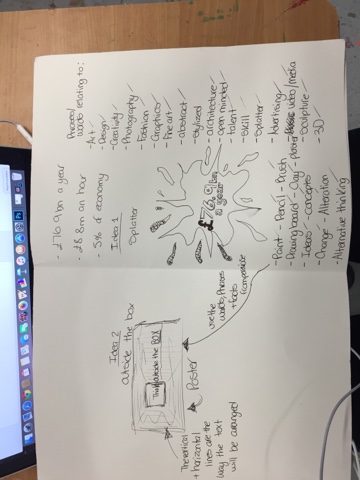 - £76.9bn a year
- £8.8m an hour
- 5% of economy
Idea 1
Splatter
£76.9 bn
a year
Phrases/
words relating to:
- Art
- Design
- Creativity
- Photography
- Fashion
- Graphics
- Fine art
- abstract
- Stylised
- Architecture
- open minded
- talent
- Skill
- Splatter
- Advertising
- video/media
- Sculpture
- 3D
- Paint - Pencil - Brush
- Drawing board - Clay - plaster
- Ideas - concepts
- Change - Alteration
- Alternative thinking
Idea 2
outside the box
Think outside the BOX
Poster
use the
words, phrases
+ facts
The vertical
+ horizontal
lines are the
way the text
will be arranged